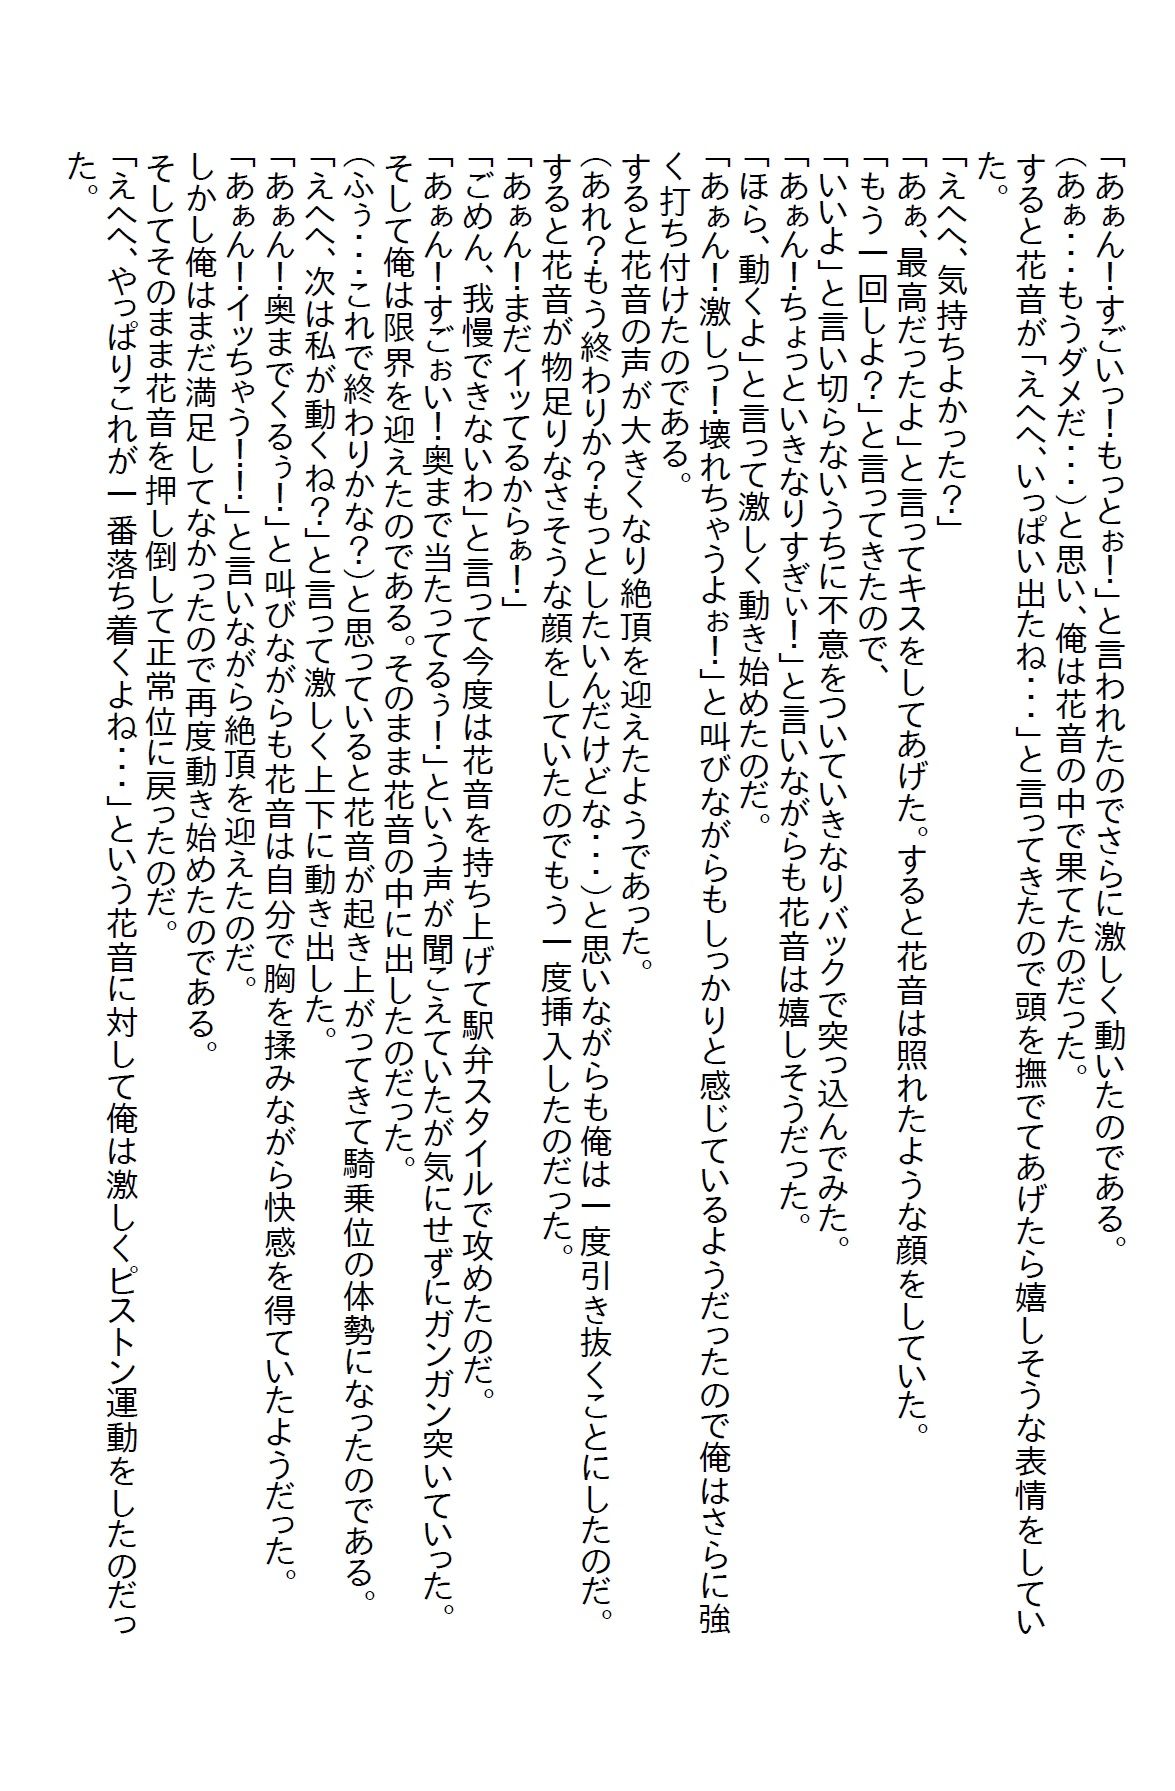 「あぁん！すごいっ！もっとぉ！」と言われたのでさらに激しく動いたのである。
（あぁ・・・もうダメだ・・・）と思い、俺は花音の中で果てたのだった。
すると花音が「えへへ、いっぱい出たね・・・」と言ってきたので頭を撫でてあげたら嬉しそうな表情をしてい
た。
「えへへ、気持ちよかった？」
「あぁ、最高だったよ」と言ってキスをしてあげた。すると花音は照れたような顔をしていた。
「もう一回しよ？」と言ってきたので、
「いいよ」と言い切らないうちに不意をついていきなりバックで突っ込んでみた。
「あぁん！ちょっといきなりすぎぃ！」と言いながらも花音は嬉しそうだった。
「ほら、動くよ」と言って激しく動き始めたのだ。
「あぁん！激しっ！壊れちゃうよぉ！」と叫びながらもしっかりと感じているようだったので俺はさらに強
く打ち付けたのである。
すると花音の声が大きくなり絶頂を迎えたようであった。
（あれ？もう終わりか？もっとしたいんだけどな・・・）と思いながらも俺は一度引き抜くことにしたのだ。
すると花音が物足りなさそうな顔をしていたのでもう一度挿入したのだった。
「あぁん！まだイッてるからぁ！」
「ごめん、我慢できないわ」と言って今度は花音を持ち上げて駅弁スタイルで攻めたのだ。
「あぁん！すごぉい！奥まで当たってるぅ！」という声が聞こえていたが気にせずにガンガン突いていった。
そして俺は限界を迎えたのである。そのまま花音の中に出したのだった。
（ふぅ・・・これで終わりかな？）と思っていると花音が起き上がってきて騎乗位の体勢になったのである。
「えへへ、次は私が動くね？」と言って激しく上下に動き出した。
「あぁん！奥までくるぅ！」と叫びながらも花音は自分で胸を揉みながら快感を得ていたようだった。
「あぁん！イッちゃう！！」と言いながら絶頂を迎えたのだ。
しかし俺はまだ満足してなかったので再度動き始めたのである。
そしてそのまま花音を押し倒して正常位に戻ったのだ。
「えへへ、やっぱりこれが一番落ち着くよね・・・」という花音に対して俺は激しくピストン運動をしたのだっ
た。